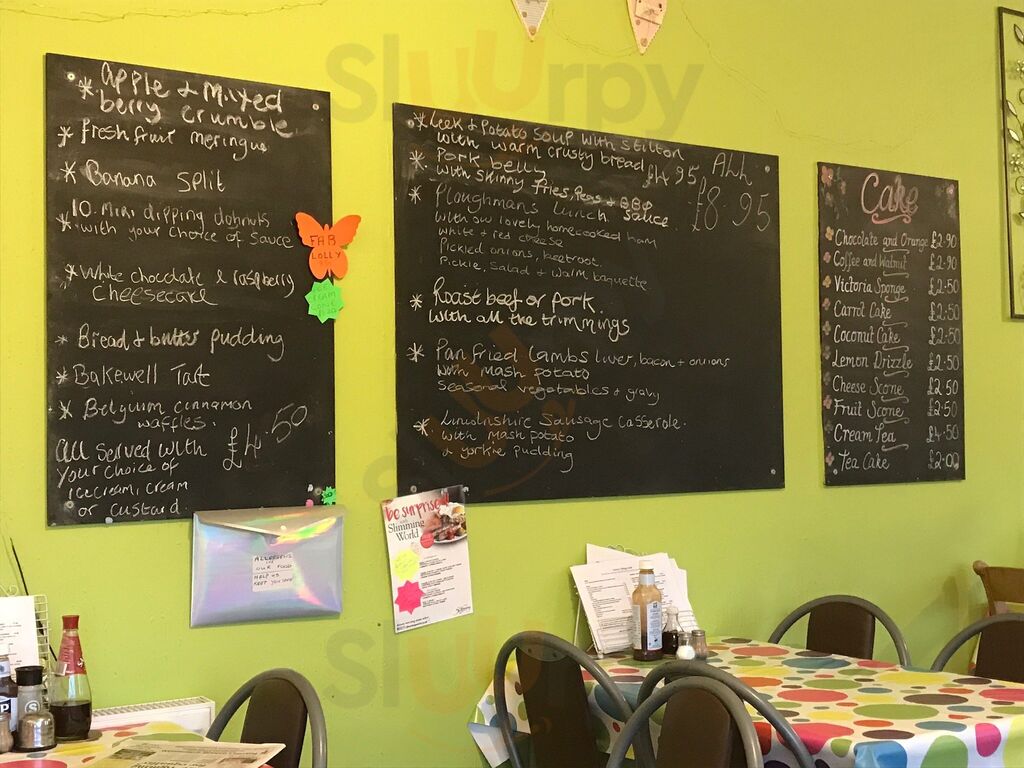 * Apple & Mixed
berry crumble
* fresh fruit meringue
* Banana Split
10. Mini dipping dohnuts
* with your choice of sauce
* White chocolate & raspberry
cheesecake
* Bread + butter pudding
* Bakewell Tart
* Belgium cinnamon
waffles.
All served with £4.50
your choice of
icecream, cream
or custard
FAB
LOLLY
* Leek & Potato Soup with stilton
with warm crusty bread £4.95
* Pork belly
with skinny fries, Peas & BBQ
sauce
ALL
£8.95
* Ploughman's Lunch
with our lovely homecooked ham
white & red cheese
Pickled onions, beetroot,
Pickle, Salad & warm baguette
* Roast beef or pork.
with all the trimmings
* Pan fried lambs liver, bacon + onions
with mash potato
seasonal vegetables & gravy
* Lincolnshire Sausage casserole.
with mash potato
& yorkie pudding
Cake
Chocolate and Orange £2.90
Coffee and Walnut £2.90
Victoria Sponge £2.50
Carrot Cake £2.50
Coconut Cake £2.50
Lemon Drizzle £2.50
Cheese Scone £2.50
Fruit Scone £2.50
Cream Tea £4.50
Tea Cake £2.00
ALLERGENS
OUR FOOD
HELP US
KEEP YOU SAFE
be surprised
Slimming
World
Sluurpy
Sluurpy